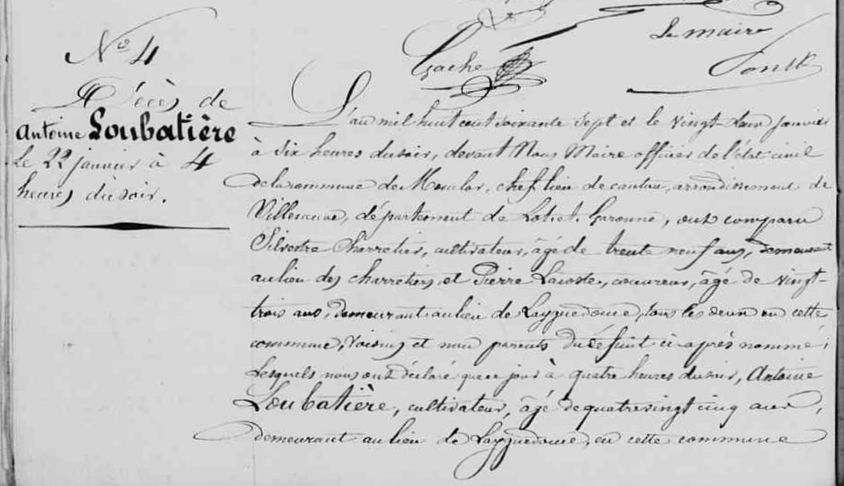 Le maire
Gache
N° 4
Décès de
Antoine Loubatière
le 22 janvier à 4
heures du soir.
L'an mil huit cent soixante sept et le vingt deux janvier
à six heures du soir, devant Nous Maire officier de l'état civil
de la commune de chef lieu de canton, arrondissement de
Villeneuve, département de Lot et Garonne, ont comparu
Silvestre Charretier, cultivateur, âgé de trente neuf ans, demeurant
au lieu des charretiers, et Pierre Lacoste, âgé de vingt-
trois ans, demeurant au lieu de tous les deux en cette
commune, voisins et non parents du défunt ci-après nommé;
Lesquels nous ont déclaré que ce jour à quatre heures du soir, Antoine
Loubatière, cultivateur, âgé de quatre vingt cinq ans,
demeurant au lieu de en cette commune